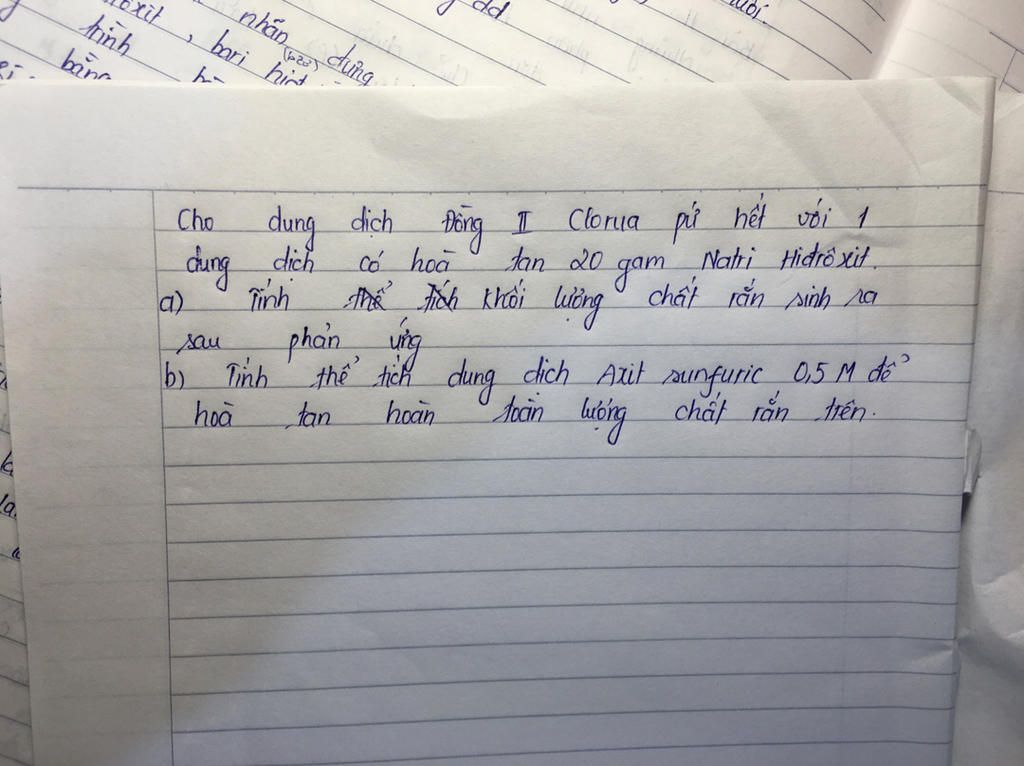 nhãn
gdd
trình , bari (2,23) dụng
bằng
Cho dung dịch Đồng II Clorua pứ hết với 1
dung dịch có hoà tan 20 gam Natri Hiđrôxit.
a) Tính thể tích khối lượng chất rắn sinh ra
sau phản ứng
b) Tính thể tích dung dịch Axit sunfuric 0,5 M để
hoà tan hoàn toàn lượng chất rắn trên.